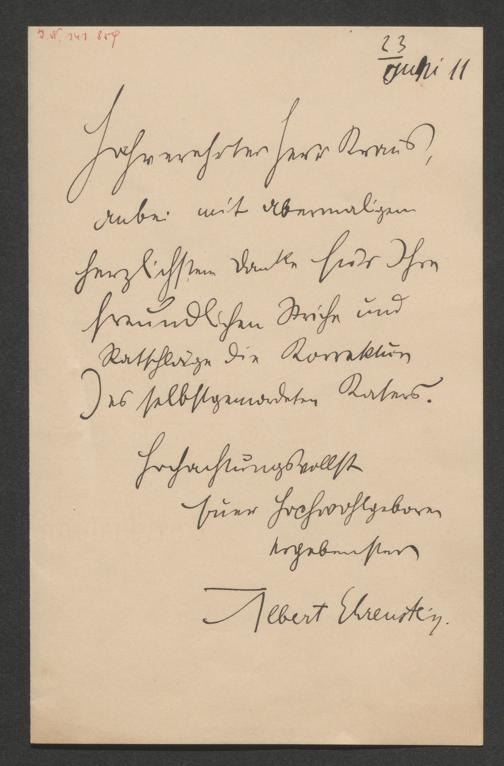 J.N. 141 859
23
Juni 11
Hochverehrter Herr Kraus,
anbei mit abermaligem
herzlichstem Danke für Ihre
freundlichen Striche und
Ratschläge die Korrektur
des selbstgemordeten Katers.
Hochachtungsvollst
Euer Hochwohlgeboren
ergebenster
Albert Ehrenstein.